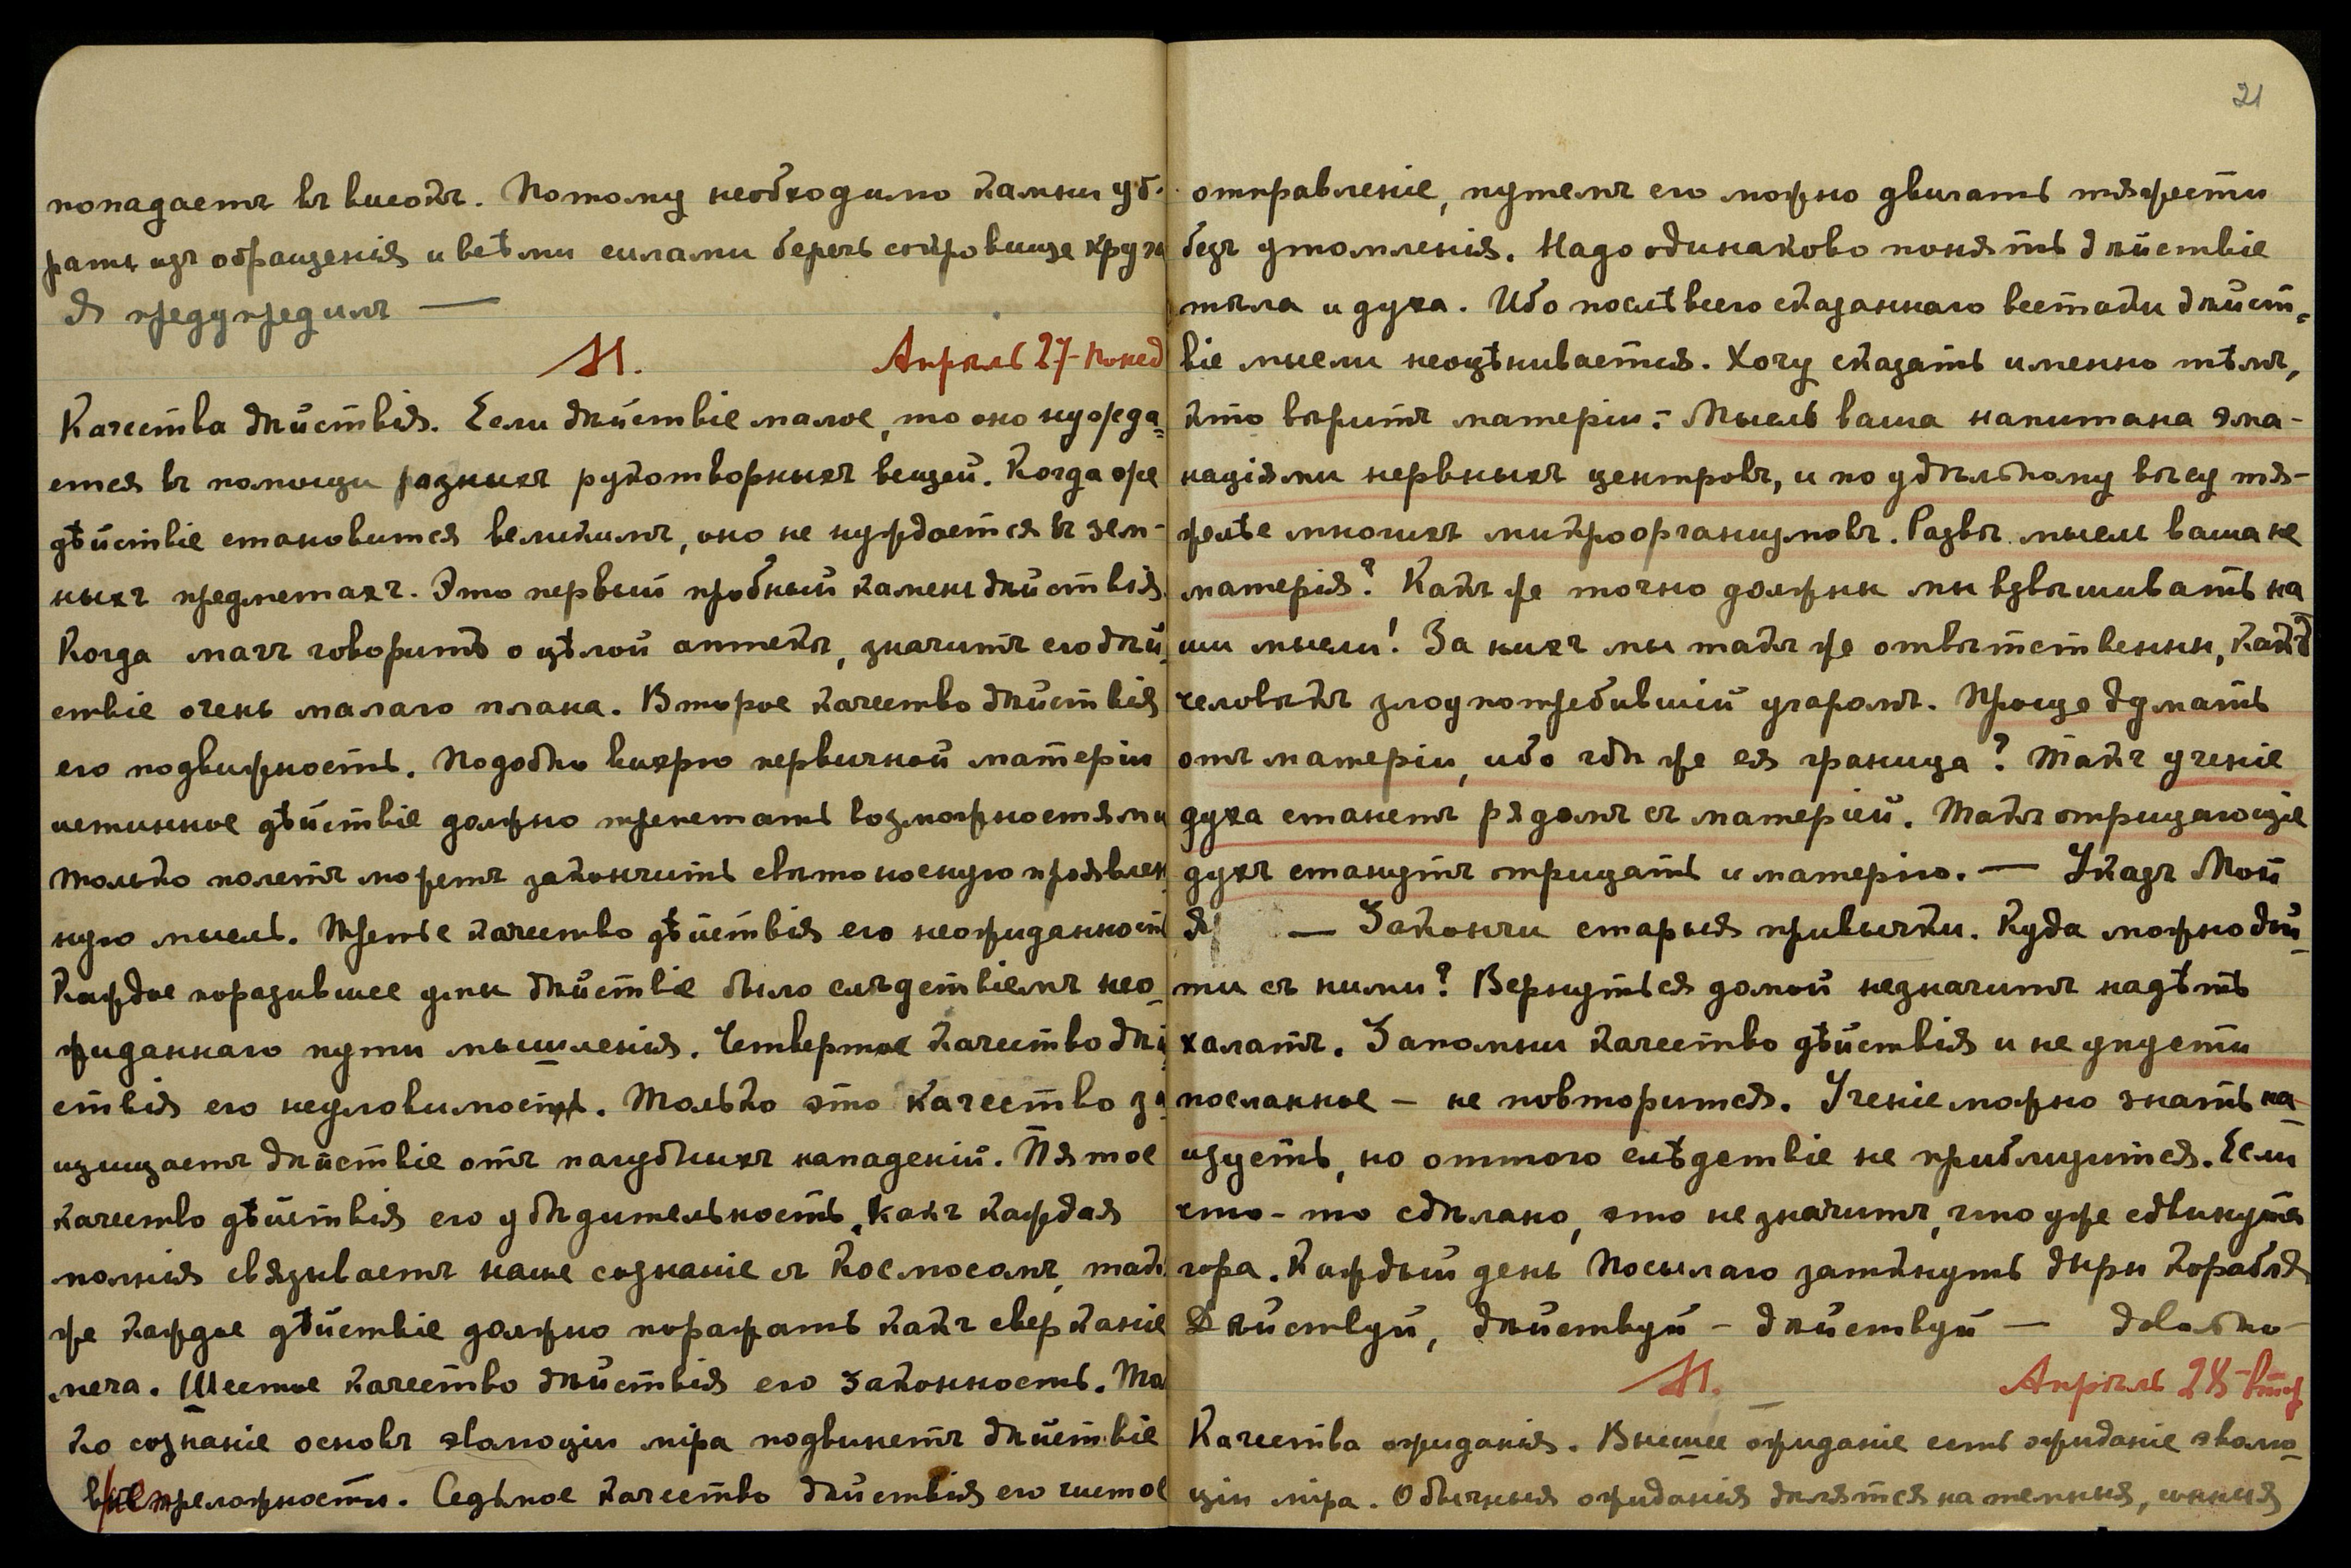 попадаетъ въ високъ. Потому необходимо камни уб.
рать изъ обращенія и всѣми силами беречь сокровище круга
Я предупредилъ —
М. Апрѣль 27-понед
Качества дѣйствія. Если дѣйствіе малое, то оно нужда=
ется въ помощи разныхъ рукотворныхъ вещей. Когда же
дѣйствіе становится великимъ, оно не нуждается въ зем-
ныхъ предметахъ. Это первый пробный камень дѣйствія.
Когда магъ говоритъ о цѣлой аптекѣ, значитъ его дѣй=
ствіе очень малаго плана. Второе качество дѣйствія
его подвижность. Подобно вихрю первичной матеріи
истинное дѣйствіе должно трепетать возможностями
Только полетъ можетъ закончить свѣтоносную проявлен
ную мысль. Третье качество дѣйствія его неожиданность
Каждое поразившее умы дѣйствіе было слѣдствіемъ нео=
жиданнаго пути мышленія. Четвертое качество дѣй
ствія его неуловимость. Только это качество за
щищаетъ дѣйствіе отъ пагубныхъ нападеній. Пятое
качество дѣйствія его убѣдительность. Какъ каждая
молнія связываетъ наше сознаніе съ Космосомъ, такъ
же каждое дѣйствіе должно поражать какъ сверканіе
меча. Шестое качество дѣйствія его законность. То
ко сознаніе основъ эволюціи міра подвинетъ дѣйствіе
в непреложности. Седьмое качество дѣйствія его чистое
21
отправленіе, путемъ его можно двигать тяжести
безъ утомленія. Надо одинаково понять дѣйствіе
тѣла и духа. Ибо послѣ всего сказаннаго всетаки дѣйст=
віе мысли неоцѣнивается. Хочу сказать именно тѣмъ,
кто вѣритъ матеріи: Мысль ваша напитана эма-
націями нервныхъ центровъ, и по удѣльному вѣсу тя-
желѣе многихъ микроорганизмовъ. Развѣ мысль ваша не
матерія? Какъ же точно должны мы взвѣшивать на
ши мысли! За нихъ мы такъ же отвѣтственны, какъ
человѣкъ злоупотребившій угаромъ. Проще думать
отъ матеріи, ибо гдѣ же ея граница? Такъ ученіе
духа станетъ рядомъ съ матеріей. Такъ отрицающіе
духъ станутъ отрицать и матерію. — Указъ Мой
Я — Закончи старыя привычки. Куда можно дой=
ти съ ними? Вернуться домой незначитъ надѣть
халатъ. Запомни качество дѣйствія и не упусти
посланное — не повторится. Ученіе можно знать на
изусть, но оттого слѣдствіе не приблизится. Если
что-то сдѣлано, это не значитъ, что уже сдвинута
гора. Каждый день Посылаю заткнуть дыры корабля
Дѣйствуй, дѣйствуй — дѣйствуй — довольно—
М. Апрѣль 28-втор
Качества ожиданія. Высшее ожиданіе есть ожиданіе эволю=
ціи міра. Обычныя ожиданія дѣлятся на темныя, сонныя